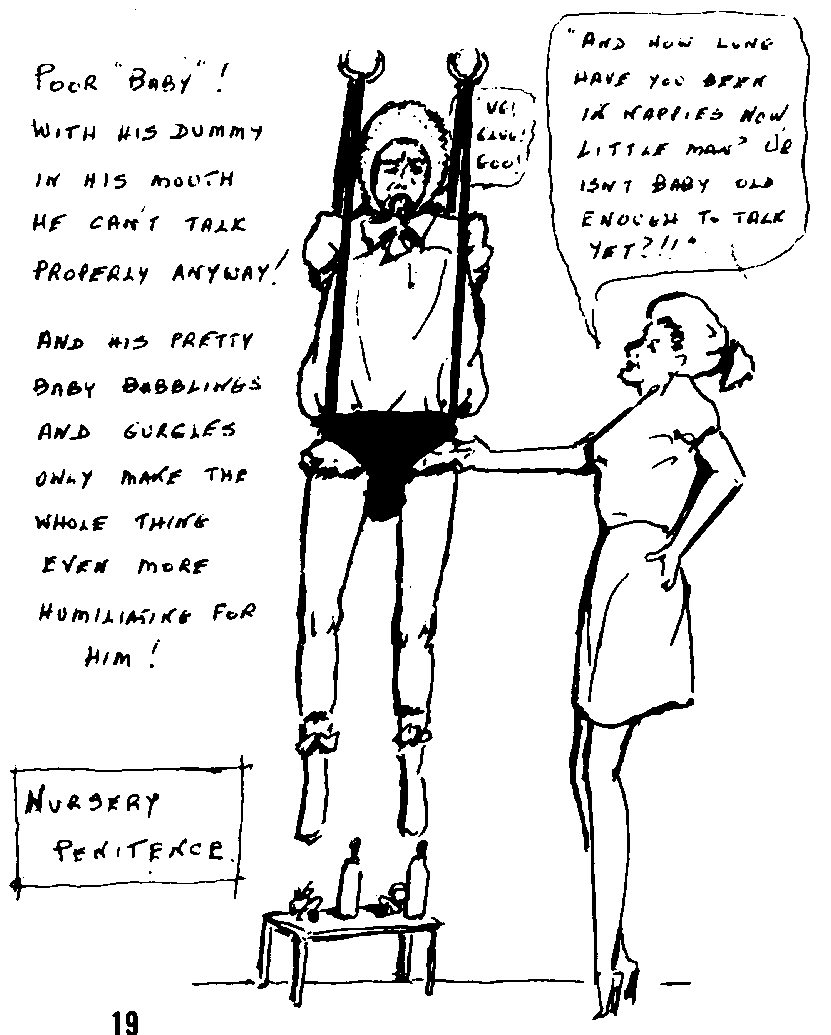 POOR "BABY"!
WITH HIS DUMMY
IN HIS MOUTH
HE CAN'T TALK
PROPERLY ANYWAY!
AND HIS PRETTY
BABY BABBLINGS
AND GURGLES
ONLY MAKE THE
WHOLE THING
EVEN MORE
HUMILIATING FOR
HIM!
UG!
GLUG!
GOO!
"AND HOW LONG
HAVE YOU BEEN
IN NAPPIES NOW
LITTLE MAN? OR
ISN'T BABY OLD
ENOUGH TO TALK
YET?!!"
NURSERY
PENITENCE.
19